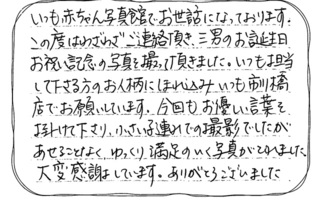 いつも赤ちゃん写真館でお世話になっております。
この度はわざわざご連絡頂き、三男のお誕生日
お祝い記念の写真を撮って頂きました。いつも担当
して下さる方のお人柄にほれ込みいつも市川橋
店でお願いしています。今回もお優しい言葉を
掛けて下さり、小さい子連れでの撮影でしたが
あせることなく、ゆっくり満足のいく写真がとれました
大変感謝しています。ありがとうございました